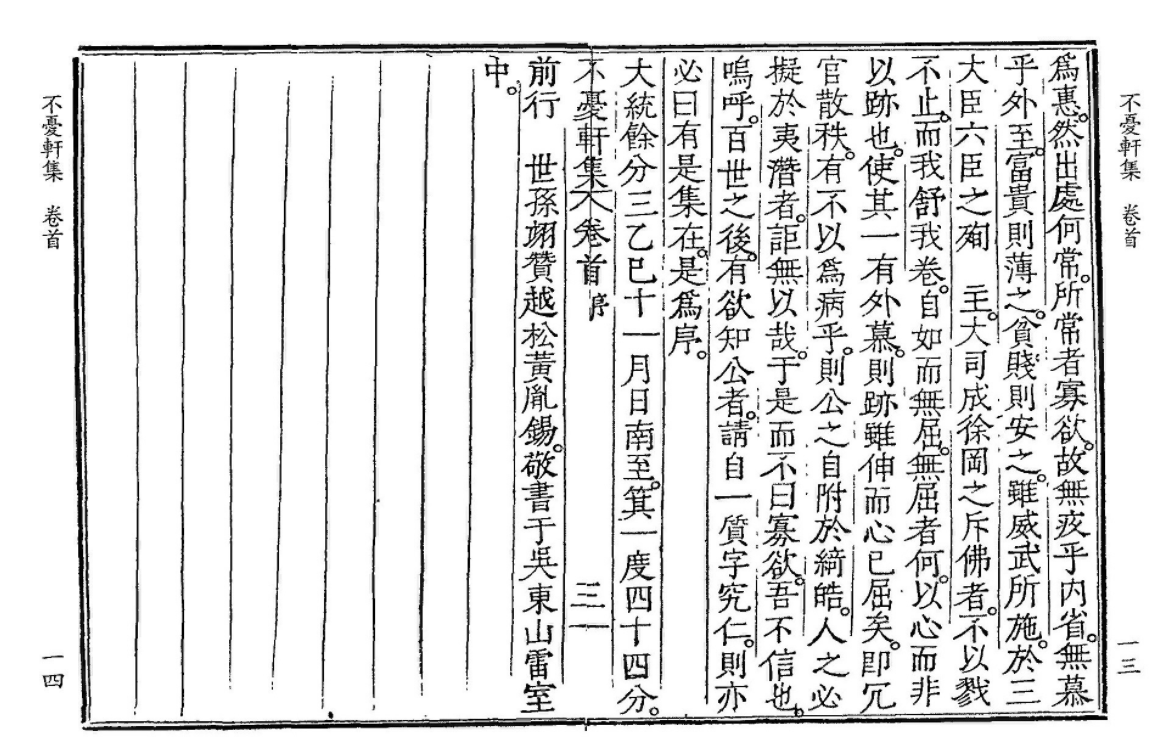 不憂軒集 卷首
一三
爲惠。然出處何常。所常者寡欲。故無疚乎內省。無慕
乎外至。富貴則薄之。貧賤則安之。雖威武所施。於三
大臣六臣之殉 主。大司成徐岡之斥佛者。不以戮
不止。而我舒我卷。自如而無屈。無屈者何。以心而非
以跡也。使其一有外慕。則跡雖伸而心已屈矣。卽冗
官散秩。有不以爲病乎。則公之自附於綺皓。人之必
擬於夷潛者。詎無以哉。于是而不曰寡欲。吾不信也。
嗚呼。百世之後。有欲知公者。請自一質字究仁。則亦
必曰有是集在。是爲序。
大統餘分三乙巳十一月日南至。箕一度四十四分。
不憂軒集 卷首 序 三
前行 世孫翊贊越松黃胤錫。敬書于吳東山雷室
中。
不憂軒集 卷首
一四